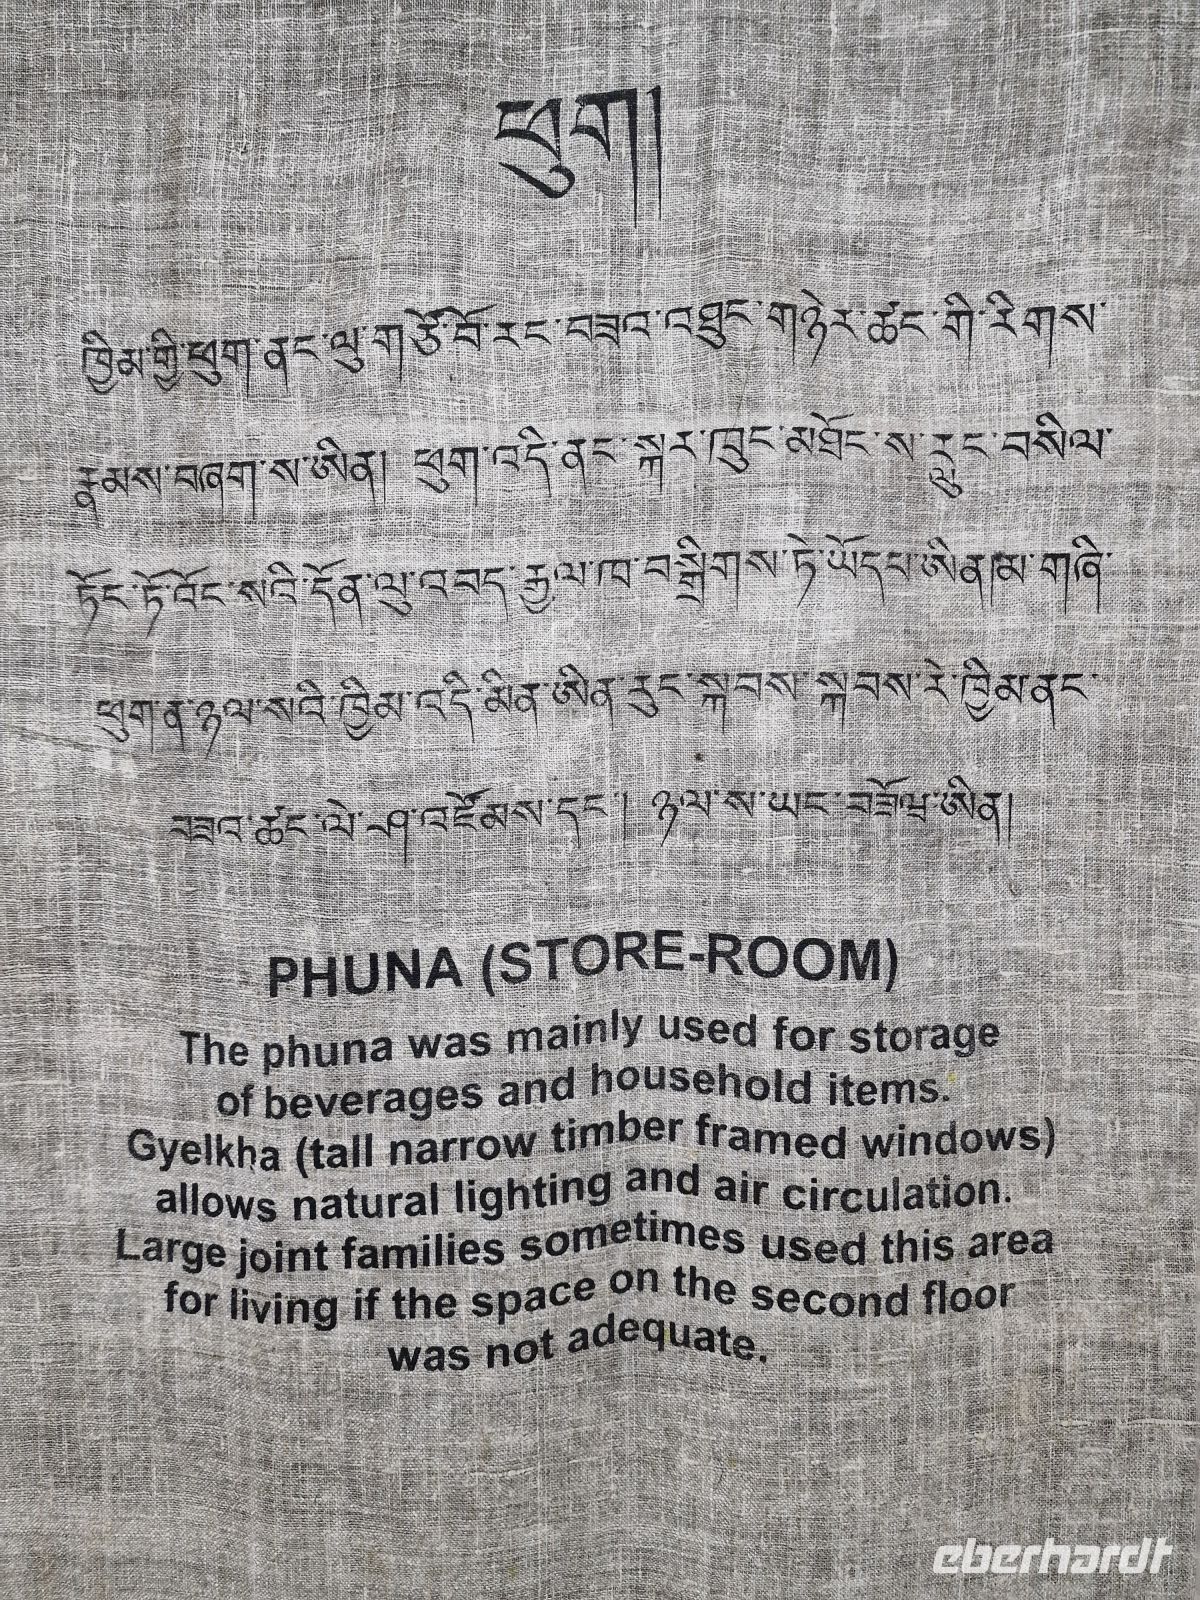 ཕུག།
ཁྱིམ་གྱི་ཕུག་ནང་ལུ་གཙོ་བོ་རང་བཟའ་འཐུང་གཉེར་ཚང་གི་རིགས་
རྣམས་བཞག་ས་ཨིན། ཕུག་འདི་ནང་སྐར་ཁུང་མཐོང་ས་རླུང་བསིལ་
ཏོང་ཏོ་འོང་སའི་དོན་ལུ་འབད་རྒྱལ་ཁ་བསྒྲིགས་ཏེ་ཡོདཔ་ཨིན།མ་གཞི་
ཕུག་ན་ཉལ་སའི་ཁྱིམ་འདི་མིན་ཨིན་རུང་སྐབས་སྐབས་རེ་ཁྱིམ་ནང་
བཟའ་ཚང་ལེ་ཤ་འཛོམས་དང་། ཉལ་ས་ཡང་བཟོཝ་ཨིན།
PHUNA (STORE-ROOM)
The phuna was mainly used for storage
of beverages and household items.
Gyelkha (tall narrow timber framed windows)
allows natural lighting and air circulation.
Large joint families sometimes used this area
for living if the space on the second floor
was not adequate.
eberhardt